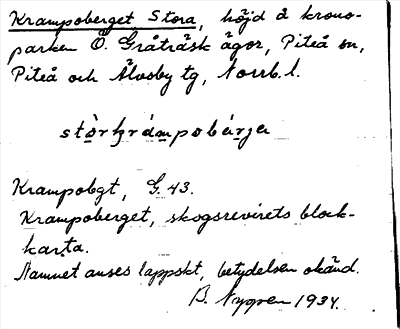 Krampoberget, Stora, höjd å krono-
parken Ö. Gråträsk ägor, Piteå sn,
Piteå och Älvsby tg, Norrb. l.
stòrkrámpobärjə
Krampobgt, G. 43.
Krampoberget, skogsrevirets block-
karta.
Namnet anses lappskt, betydelsen okänd.
B. Nygren 1934.